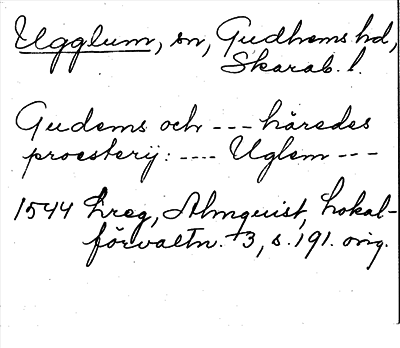 Ugglum, sn, Gudhems hd,
Skarab. l.
Gudems och --- häredes
proesterij: ---- Uglem ---
1544 Lreg, Almquist, Lokal-
förvaltn. 3, s. 191. orig.